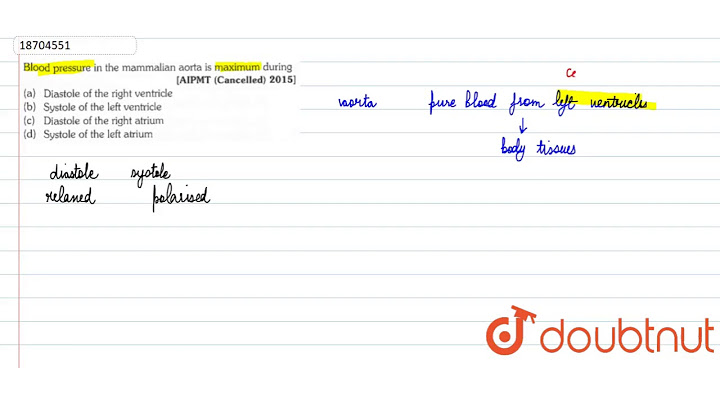 18704551
Blood pressure in the mammalian aorta is maximum during
[AIPMT (Cancelled) 2015]
(a) Diastole of the right ventricle
(b) Systole of the left ventricle
(c) Diastole of the right atrium
(d) Systole of the left atrium
Ce
aorta pure blood from left ventricles
↓
body tissues
diastole systole
relaxed polarised
doubtnut